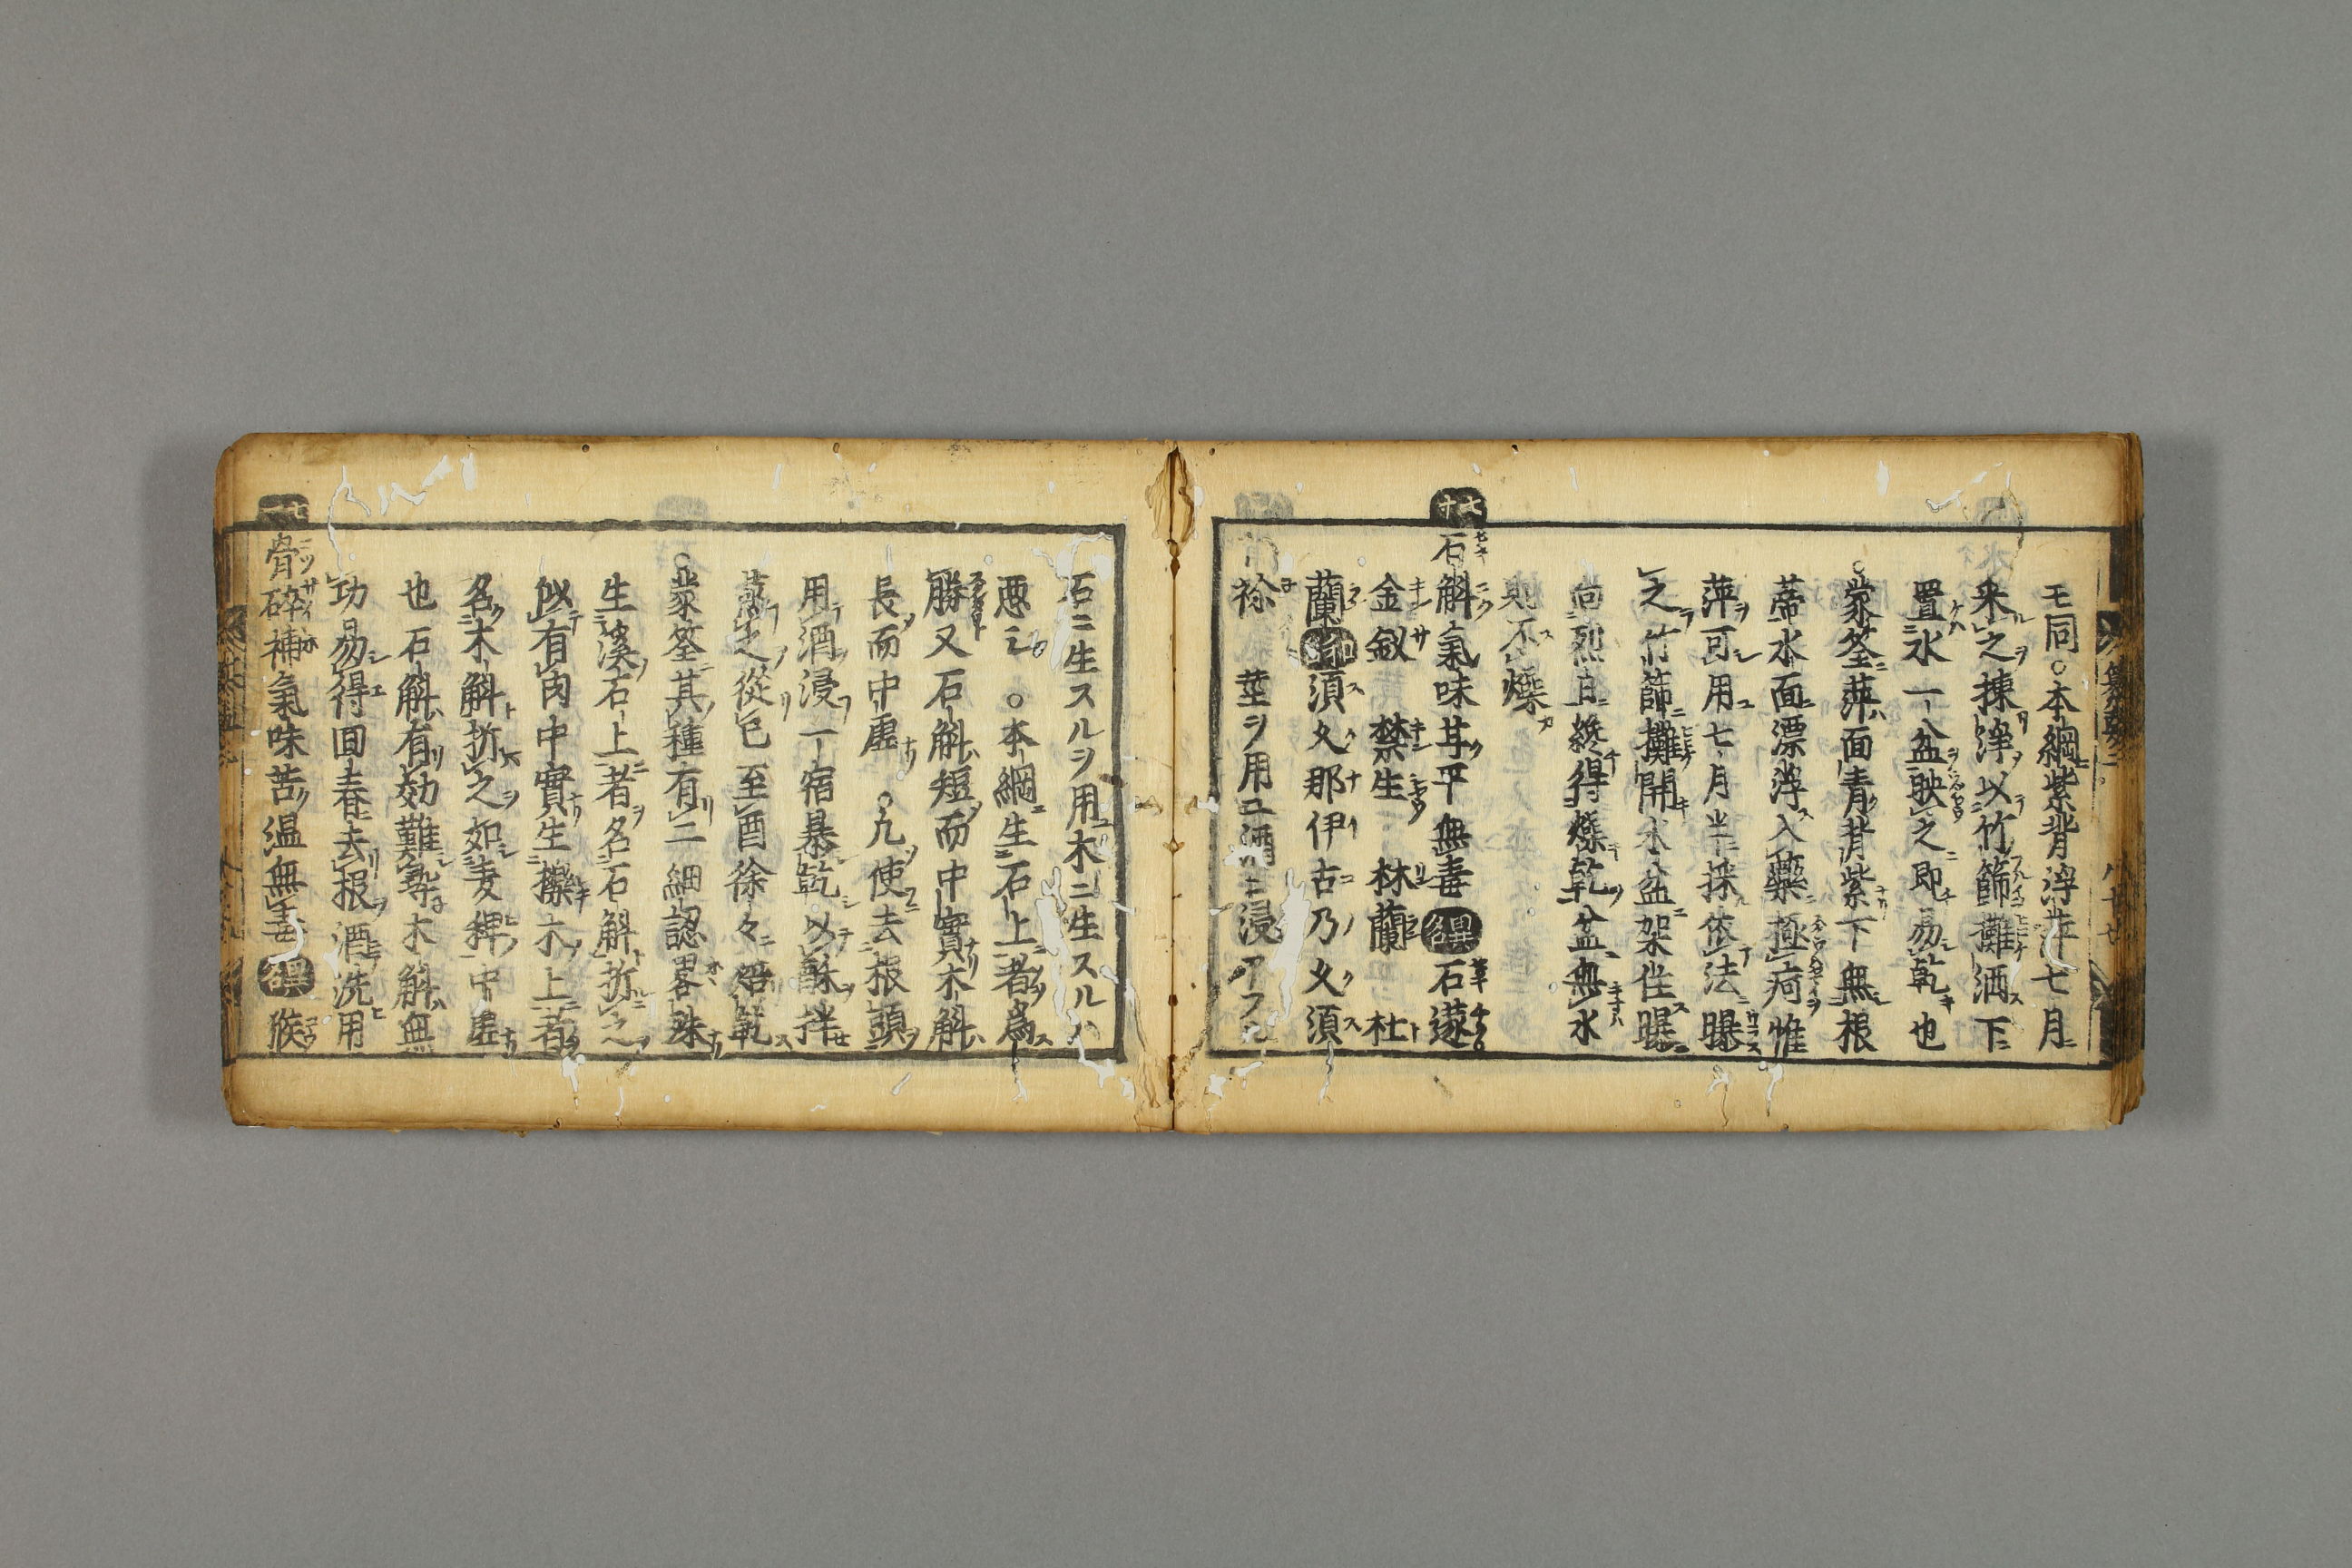 モ同○本綱紫背浮萍七月
采之揀淨以竹篩攤洒下
置水一盆映之即易乾也
○蒙筌萍面青背紫下無根
蒂水面漂浮入藥拯疴惟
萍可用七月半採依法曝
之竹篩攤開水盆架住曝
尚烈日終得燥乾盆無水
則不燥
七十
石斛氣味甘平無毒異名石蓫
金釵 禁生 林蘭 杜
蘭 和名 須久那伊古乃久須
祢 莖ヲ用ユ酒ニ浸アフル
石ニ生スルヲ用木ニ生スルハ
悪シ ○本綱生石上者為
勝又石斛短而中實木斛
長而中虚 ○凡使去根頭
用酒浸一宿暴乾以酥拌
蒸之從巳至酉徐々焙乾
○蒙筌其種有二細認畧殊
生溪石上者名石斛折之
似有肉中實生櫟木上者
名木斛折之如麦稈中虚
也石斛有効難尋木斛無
功易得回春去根酒洗用
七一
骨碎補氣味苦温無毒異名猴